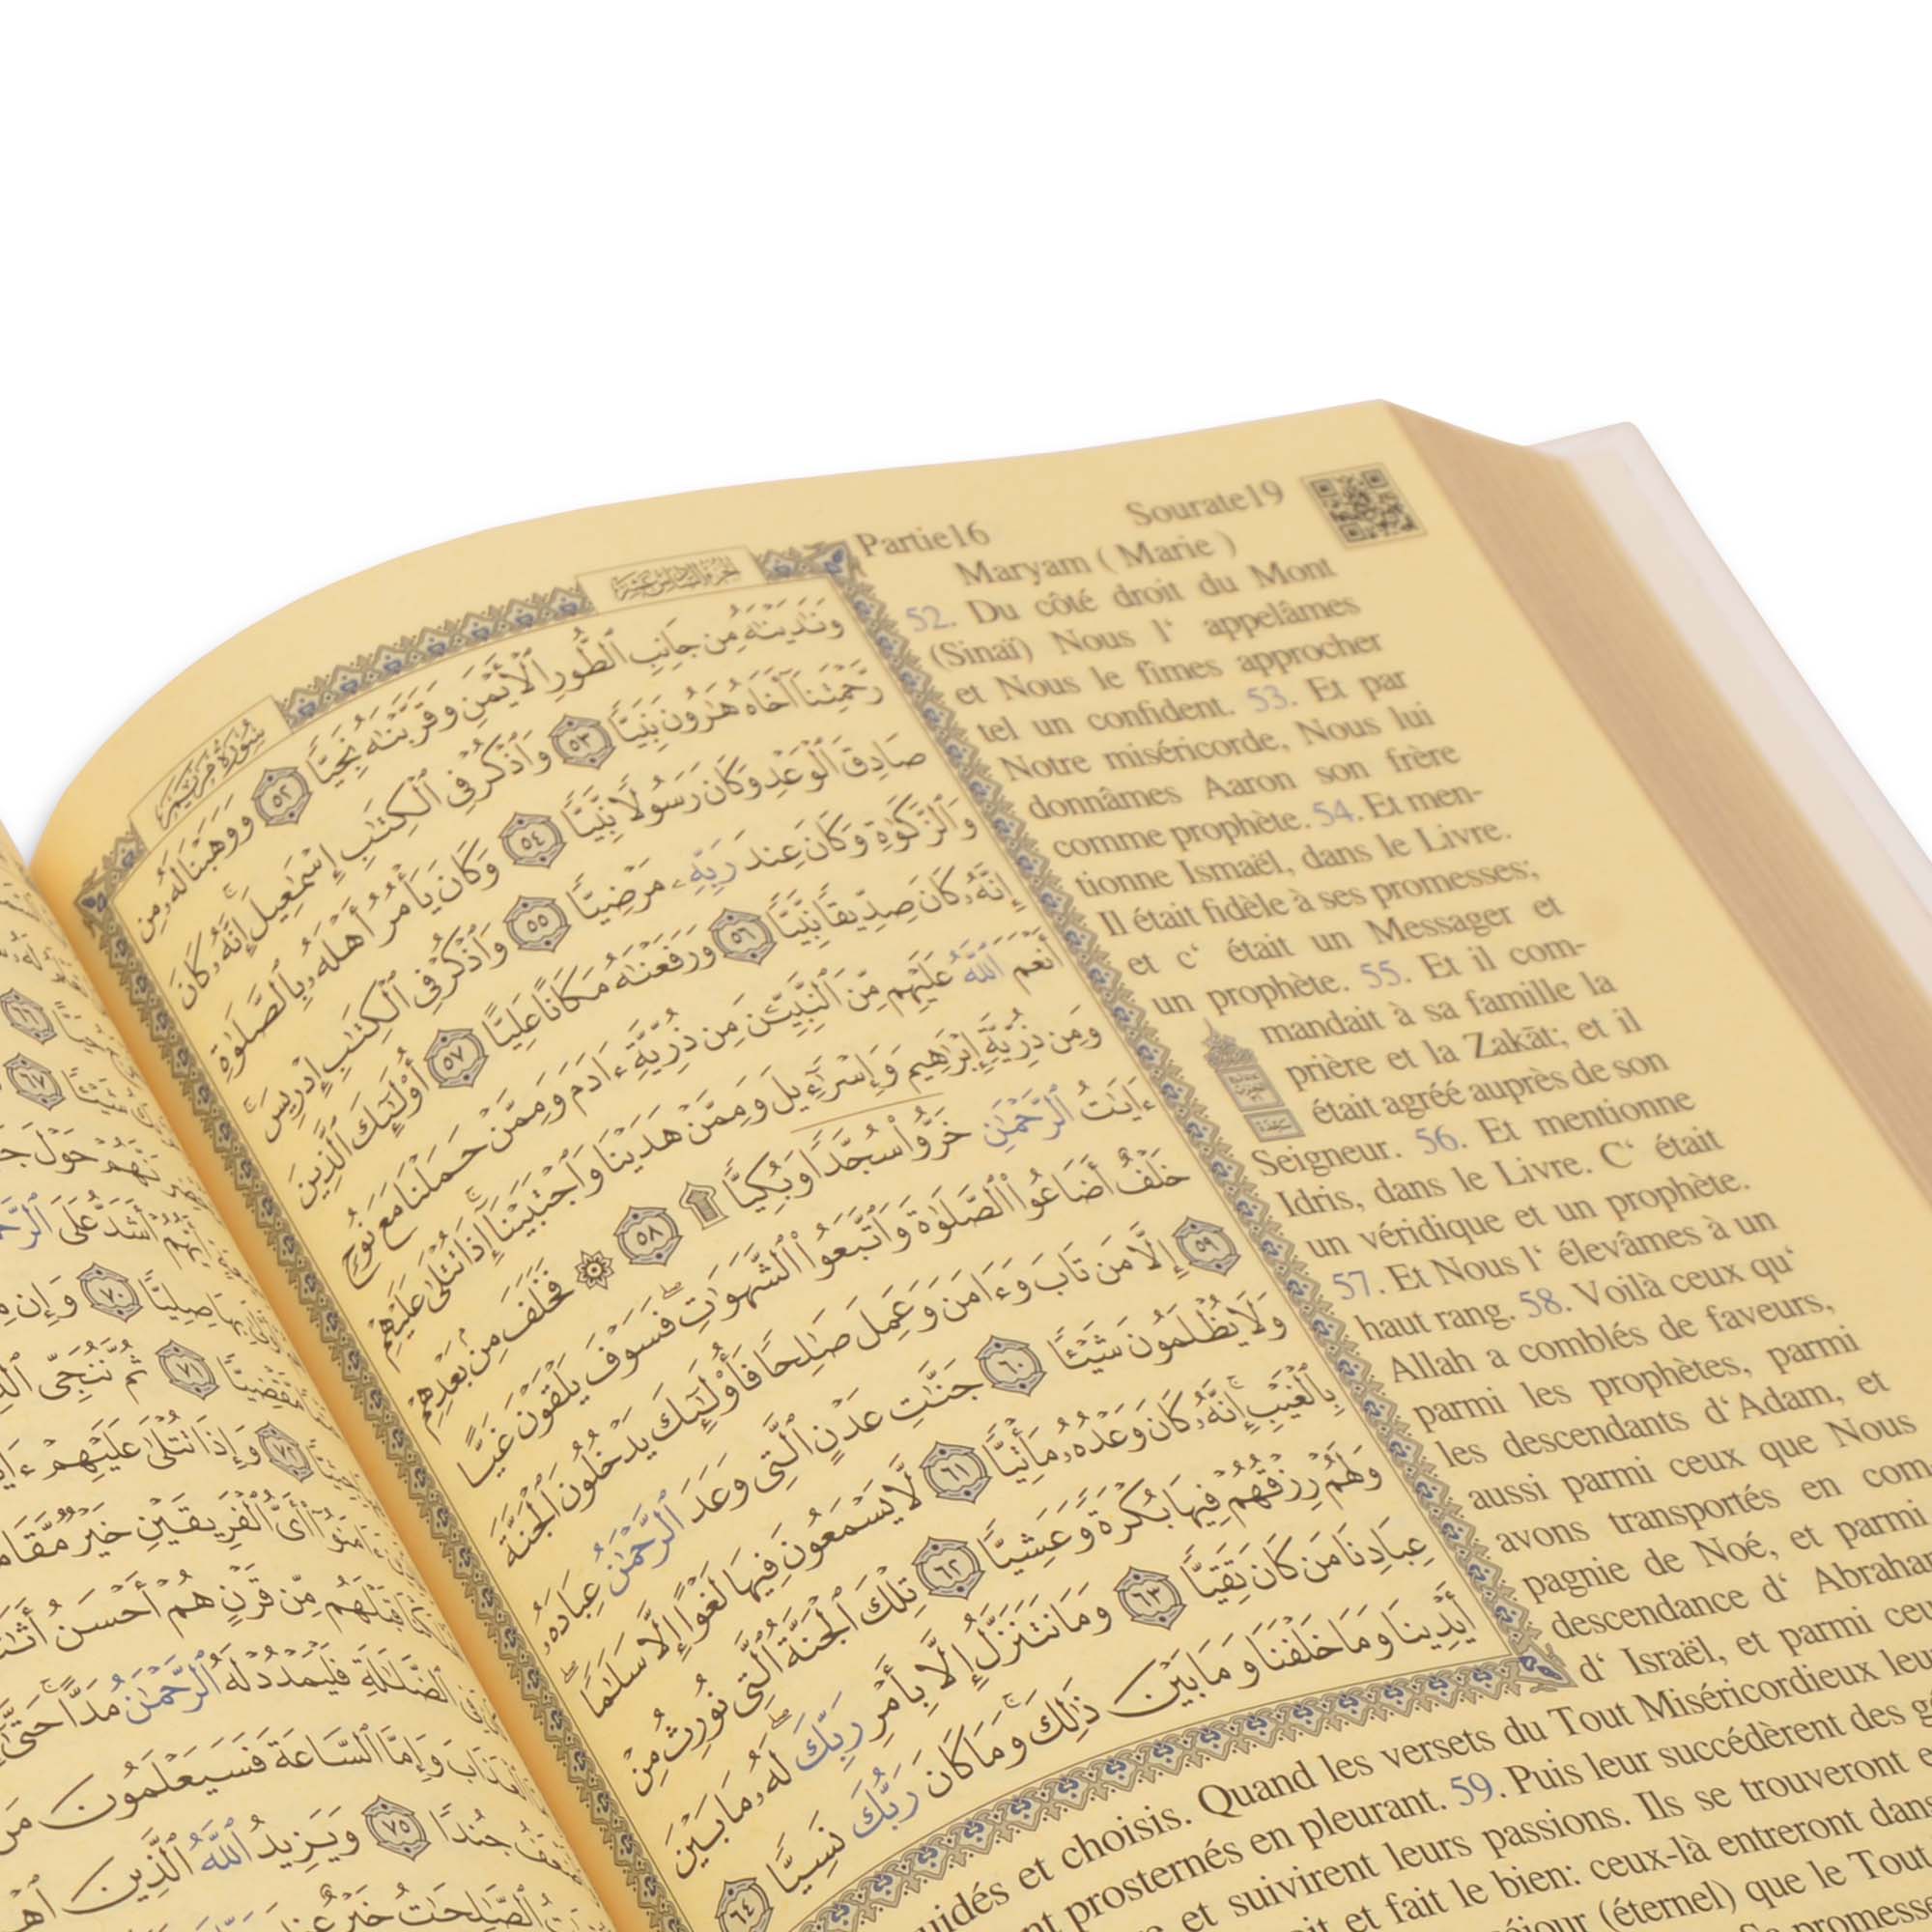 Partie16 Sourate19
Maryam ( Marie )
52. Du côté droit du Mont
(Sinaï) Nous l‘ appelâmes
et Nous le fîmes approcher
tel un confident. 53. Et par
Notre miséricorde, Nous lui
donnâmes Aaron son frère
comme prophète. 54. Et men-
tionne Ismaël, dans le Livre.
Il était fidèle à ses promesses;
et c‘ était un Messager et
un prophète. 55. Et il com-
mandait à sa famille la
prière et la Zakāt; et il
était agréé auprès de son
Seigneur. 56. Et mentionne
Idris, dans le Livre. C‘ était
un véridique et un prophète.
57. Et Nous l‘ élevâmes à un
haut rang. 58. Voilà ceux qu‘
Allah a comblés de faveurs,
parmi les prophètes, parmi
les descendants d‘Adam, et
aussi parmi ceux que Nous
avons transportés en com-
pagnie de Noé, et parmi
descendance d‘
d‘ Israël, et parmi
et choisis. Quand les versets du Tout Miséricordieux
prosternés en pleurant. 59. Puis leur succédèrent des
et suivirent leurs passions. Ils se trouveront
et fait le bien: ceux-là entreront
(éternel) que le Tout
الجزء السادس عشر
سورة مريم
وَنَـٰدَيْنَـٰهُ مِن جَانِبِ ٱلطُّورِ ٱلْأَيْمَنِ وَقَرَّبْنَـٰهُ نَجِيًّا ٥٢ وَوَهَبْنَا لَهُۥ مِن
رَّحْمَتِنَآ أَخَاهُ هَـٰرُونَ نَبِيًّا ٥٣ وَٱذْكُرْ فِى ٱلْكِتَـٰبِ إِسْمَـٰعِيلَ ۚ إِنَّهُۥ كَانَ
صَادِقَ ٱلْوَعْدِ وَكَانَ رَسُولًا نَّبِيًّا ٥٤ وَكَانَ يَأْمُرُ أَهْلَهُۥ بِٱلصَّلَوٰةِ
وَٱلزَّكَوٰةِ وَكَانَ عِندَ رَبِّهِۦ مَرْضِيًّا ٥٥ وَٱذْكُرْ فِى ٱلْكِتَـٰبِ إِدْرِيسَ ۚ
إِنَّهُۥ كَانَ صِدِّيقًا نَّبِيًّا ٥٦ وَرَفَعْنَـٰهُ مَكَانًا عَلِيًّا ٥٧ أُو۟لَـٰٓئِكَ ٱلَّذِينَ
أَنْعَمَ ٱللَّهُ عَلَيْهِم مِّنَ ٱلنَّبِيِّـۧنَ مِن ذُرِّيَّةِ ءَادَمَ وَمِمَّنْ حَمَلْنَا مَعَ نُوحٍ
وَمِن ذُرِّيَّةِ إِبْرَٰهِيمَ وَإِسْرَٰٓءِيلَ وَمِمَّنْ هَدَيْنَا وَٱجْتَبَيْنَآ ۚ إِذَا تُتْلَىٰ عَلَيْهِمْ
ءَايَـٰتُ ٱلرَّحْمَـٰنِ خَرُّوا۟ سُجَّدًا وَبُكِيًّا ۩ ٥٨ ۞ فَخَلَفَ مِنۢ بَعْدِهِمْ
خَلْفٌ أَضَاعُوا۟ ٱلصَّلَوٰةَ وَٱتَّبَعُوا۟ ٱلشَّهَوَٰتِ ۖ فَسَوْفَ يَلْقَوْنَ غَيًّا
٥٩ إِلَّا مَن تَابَ وَءَامَنَ وَعَمِلَ صَـٰلِحًا فَأُو۟لَـٰٓئِكَ يَدْخُلُونَ ٱلْجَنَّةَ
وَلَا يُظْلَمُونَ شَيْـًٔا ٦٠ جَنَّـٰتِ عَدْنٍ ٱلَّتِى وَعَدَ ٱلرَّحْمَـٰنُ عِبَادَهُۥ
بِٱلْغَيْبِ ۚ إِنَّهُۥ كَانَ وَعْدُهُۥ مَأْتِيًّا ٦١ لَّا يَسْمَعُونَ فِيهَا لَغْوًا إِلَّا سَلَـٰمًا ۖ
وَلَهُمْ رِزْقُهُمْ فِيهَا بُكْرَةً وَعَشِيًّا ٦٢ تِلْكَ ٱلْجَنَّةُ ٱلَّتِى نُورِثُ مِنْ
عِبَادِنَا مَن كَانَ تَقِيًّا ٦٣ وَمَا نَتَنَزَّلُ إِلَّا بِأَمْرِ رَبِّكَ ۖ لَهُۥ مَا بَيْنَ
أَيْدِينَا وَمَا خَلْفَنَا وَمَا بَيْنَ ذَٰلِكَ ۚ وَمَا كَانَ رَبُّكَ نَسِيًّا ٦٤
٦٦
٦٧
أَشَدُّ عَلَى
صِلِيًّا ٧٠ وَإِن
٧١ ثُمَّ نُنَجِّى
وَإِذَا تُتْلَىٰ عَلَيْهِمْ
أَىُّ ٱلْفَرِيقَيْنِ خَيْرٌ
قَبْلَهُم مِّن قَرْنٍ هُمْ أَحْسَنُ
ٱلضَّلَـٰلَةِ فَلْيَمْدُدْ لَهُ ٱلرَّحْمَـٰنُ مَدًّا ۚ حَتَّىٰٓ
وَإِمَّا ٱلسَّاعَةَ فَسَيَعْلَمُونَ
جُندًا ٧٥ وَيَزِيدُ ٱللَّهُ ٱلَّذِينَ